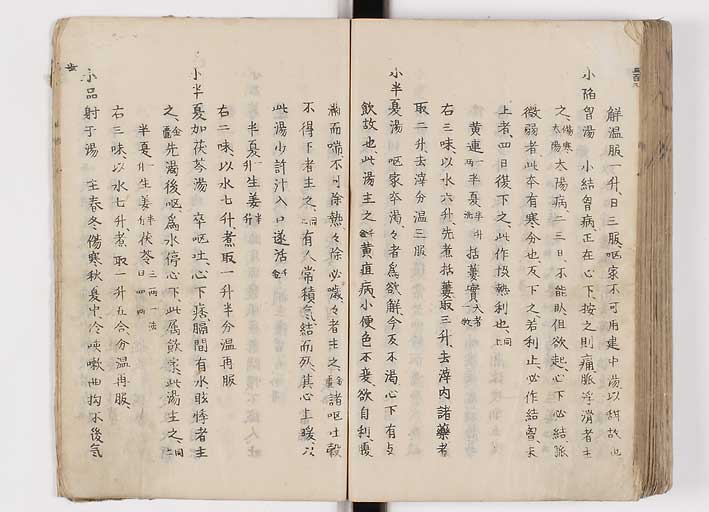 解温服一升、日三服、嘔家不可用建中湯以甜故也
小陷胷湯　小結胷病、正在心下、按之則痛脈浮滑者主
之、傷寒太陽太陽病、二三日、不能臥但欲起、心下必結、脈
微弱者、此本有寒分也、反下之、若利止、必作結胷、未
止者、四日復下之、此作恊熱利也、同上
黄連一兩半夏半升洗括蔞實大者一枚
右三味、以水六升、先煮括蔞取三升、去滓内諸藥煮
取二升去滓分温三服
小半夏湯　嘔家卒渇々者為欲解、今反不渇心下有支
飲故也、此湯主之金千黄疸病、小便色不変、欲自利、腹
滿而喘、不可除熱々除必噦々者主之、金諸嘔吐穀
不得下者主之、同有人常積気結而死、其心上暖、以
此湯少許汁入口遂活金千
半夏一升生姜半升
右二味、以水七升、煮取一升半分温再服
小半夏加茯苓湯、卒嘔吐、心下痞、膈間有水眩悸者主
之、金先渇後嘔為水停心下、此属飲家、此湯主之、同上
半夏一升生姜半茯苓三兩
右三味、以水七升、煮取一升五合、分温再服、
小品射干湯　主春冬傷寒秋夏中冷咳嗽曲拘不後気